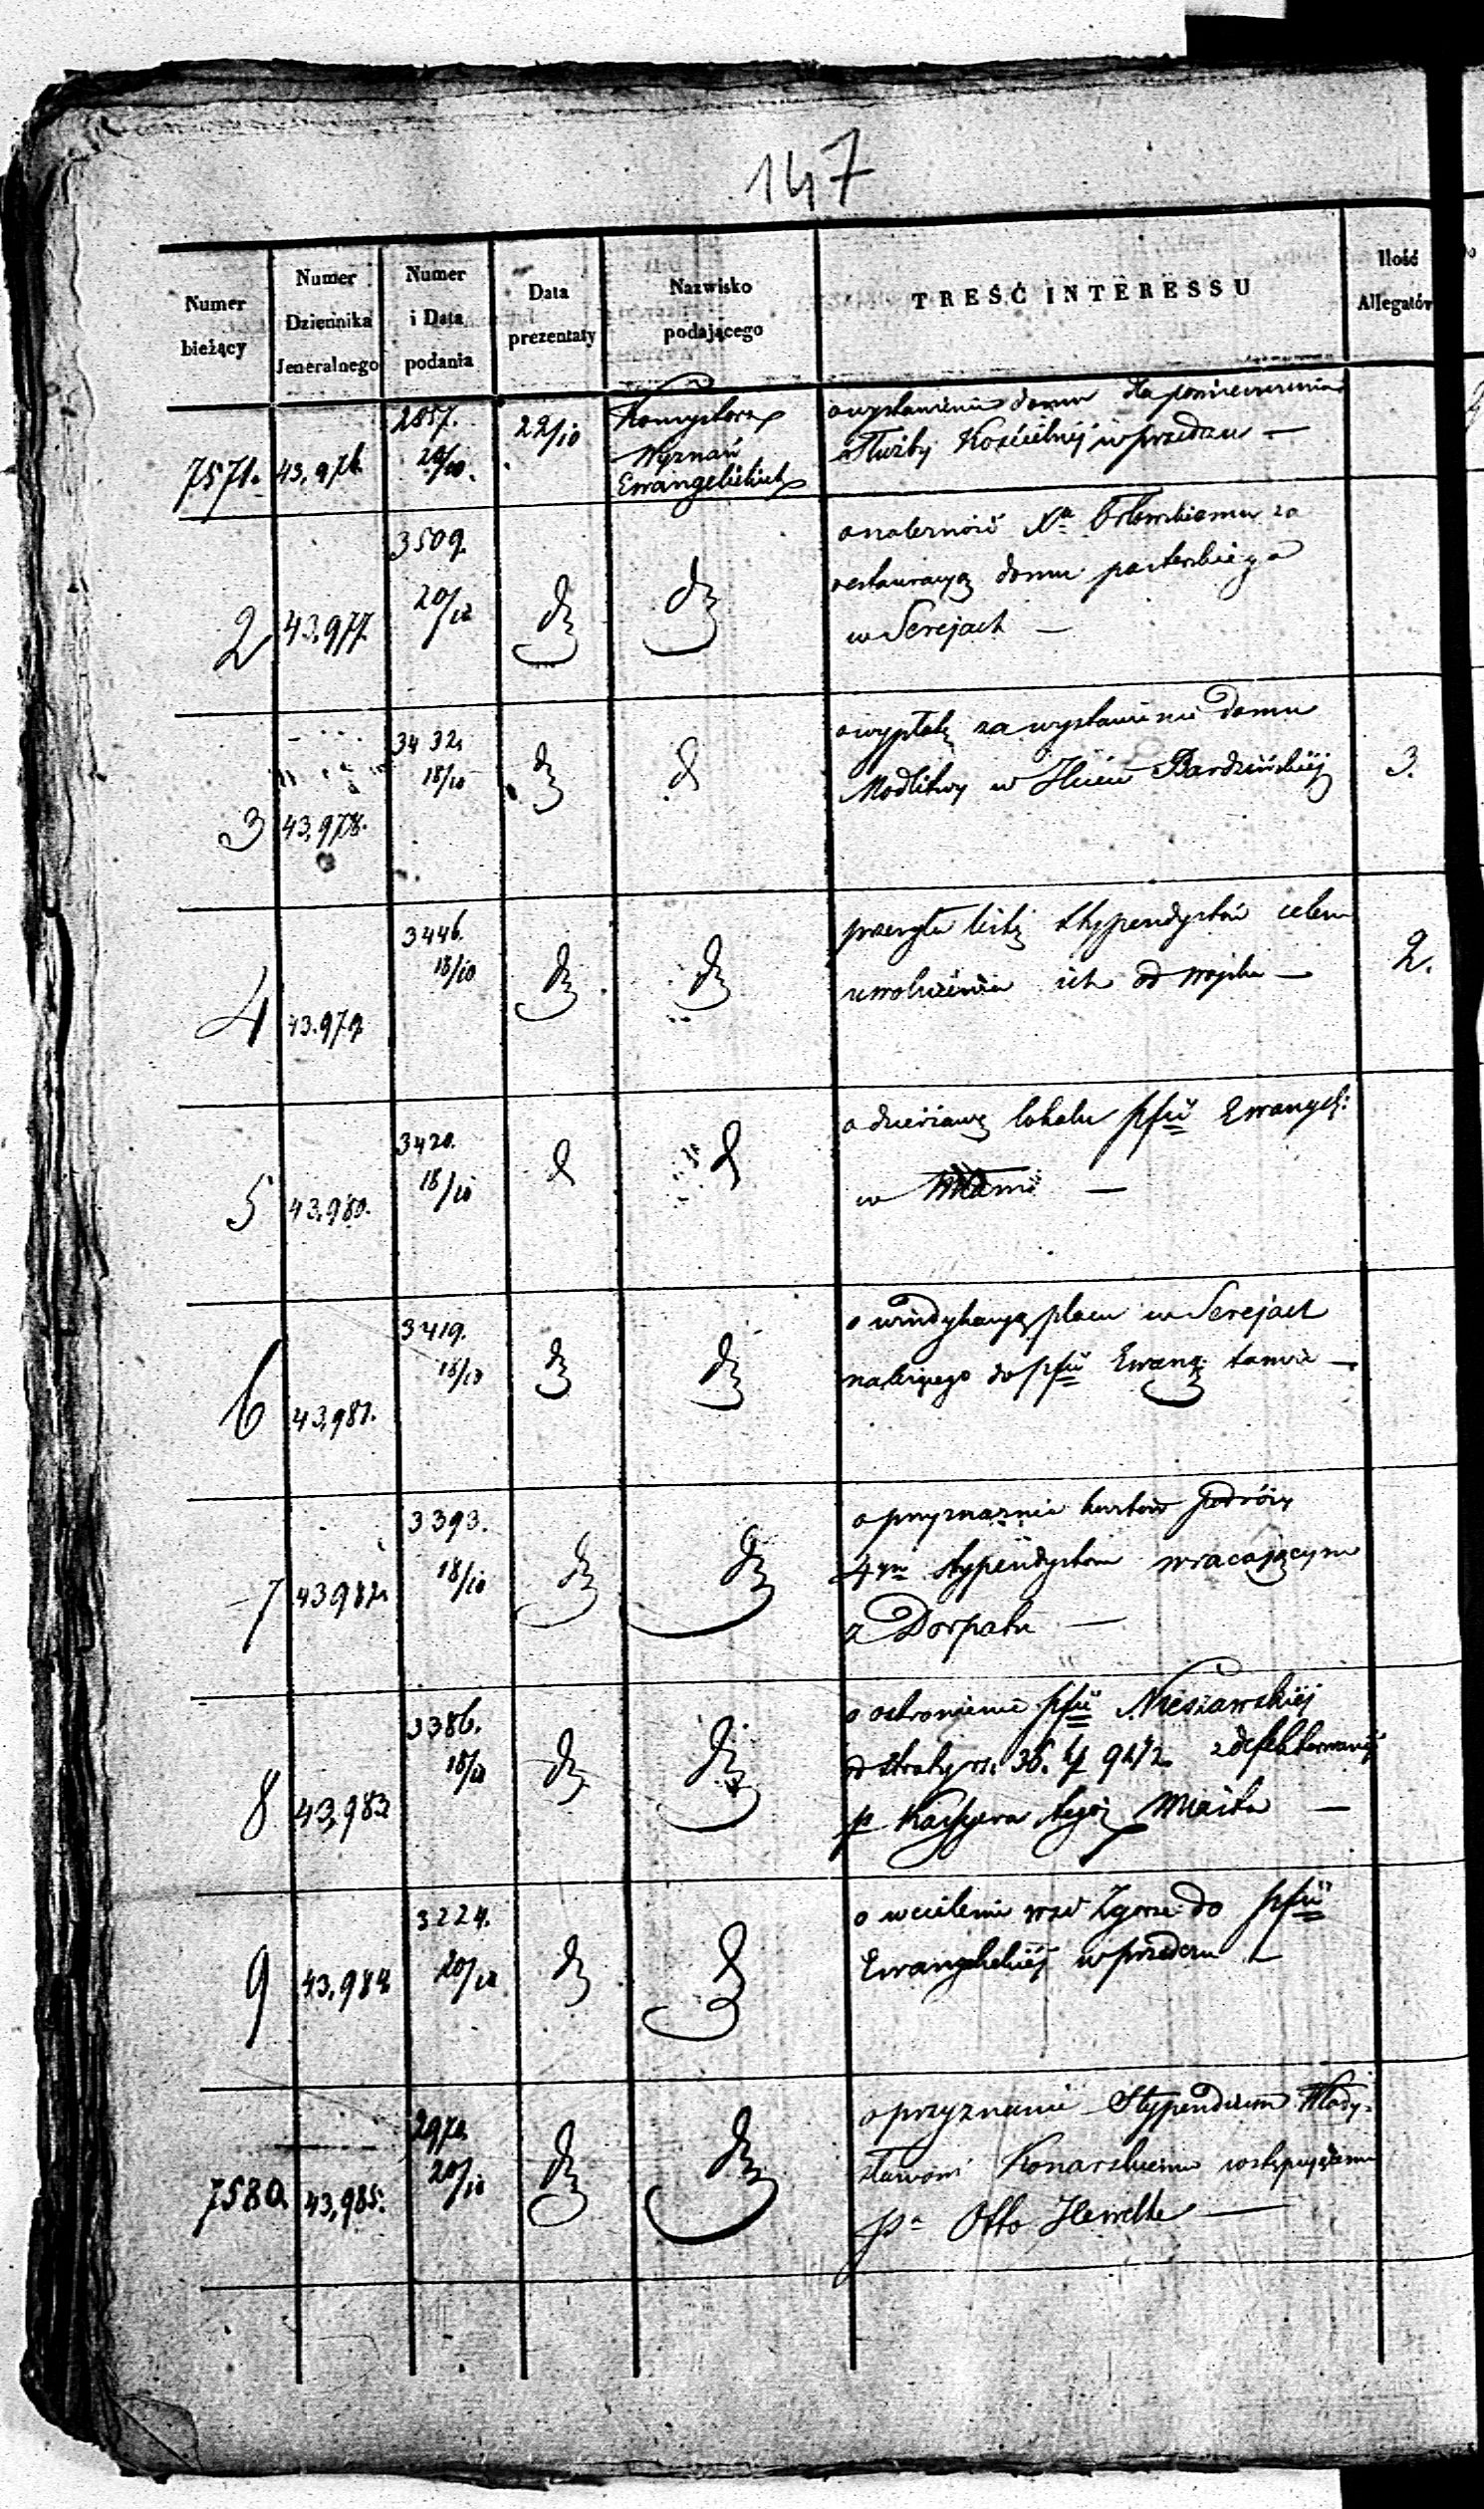 147
Numer bieżący
Numer Dziennika Jeneralnego
Numer i Data podania
Data prezentaty
Nazwisko podającego
TREŚĆ INTERESSU
Ilość Allegatów
7571. 43,976. 2857. 20/10. 22/10 Konsystorz Wyznań Ewangelickich
o wystawienie domu dla pomieszczenia
Służby Kościelnéj w
2 43.977. 3509. 20/10 dz dz
o należność Xa za
restauracyą domu pasterskiego
w Serejach —
3 43,978. 3432. 18/10 dz d
o wypłatę za wystawienie domu
Modlitwy w Hucie Bardzińskiéj 3.
4 43.979 3446. 18/10 dz dz
przesyła listę stypendystów celem
uwolnienia ich od wojska — 2.
5 43.980. 3420. 18/10 d d
o dzierżawę lokalu pfii Ewangel:
w —
6 43,981. 3419. 18/10 dz dz
o windykacyą placu w Serejach
należącego do pfii Ewang: tamże —
7 43982. 3393. 18/10 dz dz
o przyznanie kosztów podróży
4m stypendystom wracającym
z Dorpatu —
8 43,983 3386. 18/10 dz dz
o ochronienie pfii Nieszawskiéj
od straty rs. 36. k 92 1/2 zdefektowanéj
p Kassyera tegoż Miasta —
9 43,984 3224. 20/10 dz d
o wcielenie wsi do pfii
Ewangelickiéj w —
7580. 43,985. 2970. 20/10 dz dz
o przyznanie Stypendium Włady-
sławowi Konarskiemu
po Otto —